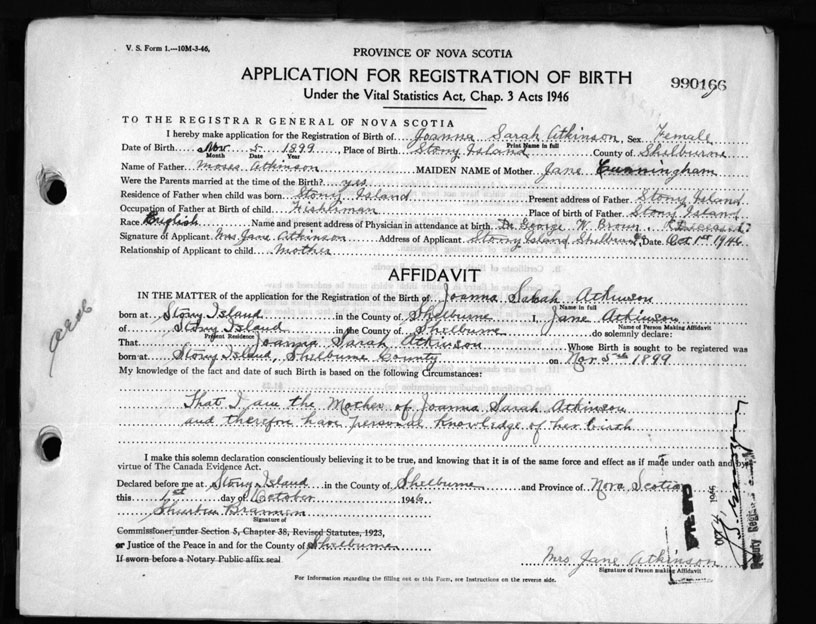 V. S. Form 1.—10M-3-46.
PROVINCE OF NOVA SCOTIA
APPLICATION FOR REGISTRATION OF BIRTH
990166
Under the Vital Statistics Act, Chap. 3 Acts 1946
TO THE REGISTRAR GENERAL OF NOVA SCOTIA
I hereby make application for the Registration of Birth of Joanna Sarah Atkinson, Sex Female
Print Name in full
Date of Birth Nov 5 1899 Place of Birth Stony Island County of Shelburne
Month Date Year
Name of Father Moses Atkinson MAIDEN NAME of Mother Jane Cunningham
Were the Parents married at the time of the Birth? yes
Residence of Father when child was born Stony Island Present address of Father Stony Island
Occupation of Father at Birth of child Fishirman Place of birth of Father Stony Island
Race English Name and present address of Physician in attendance at birth Dr George W. Brown, (Deceased)
Signature of Applicant Mrs Jane Atkinson Address of Applicant Stony Island Shelburne Date Oct 1st 1946
Relationship of Applicant to child Mother
AFFIDAVIT
IN THE MATTER of the application for the Registration of the Birth of Joanna Sarah Atkinson
Name in full
born at Stony Island in the County of Shelburne I, Jane Atkinson
Name of Person Making Affidavit
of Stony Island in the County of Shelburne do solemnly declare:
Present Residence
That Joanna Sarah Atkinson Whose Birth is sought to be registered was
born at Stony Island, Shelburne County on Nov 5th 1899
My knowledge of the fact and date of such Birth is based on the following Circumstances:
That I am the Mother of Joanna Sarah Atkinson
and therefore have personal Knowledge of her birth
I make this solemn declaration conscientiously believing it to be true, and knowing that it is of the same force and effect as if made under oath and by
virtue of The Canada Evidence Act.
Declared before me at Stony Island in the County of Shelburne and Province of Nova Scotia
this 1st day of October 1946
Brannen
Signature of
Commissioner under Section 5, Chapter 38, Revised Statutes, 1923,
or Justice of the Peace in and for the County of Shelburne
If sworn before a Notary Public affix seal
Mrs Jane Atkinson
Signature of Person making Affidavit
For Information regarding the filling out of this Form, see Instructions on the reverse side.